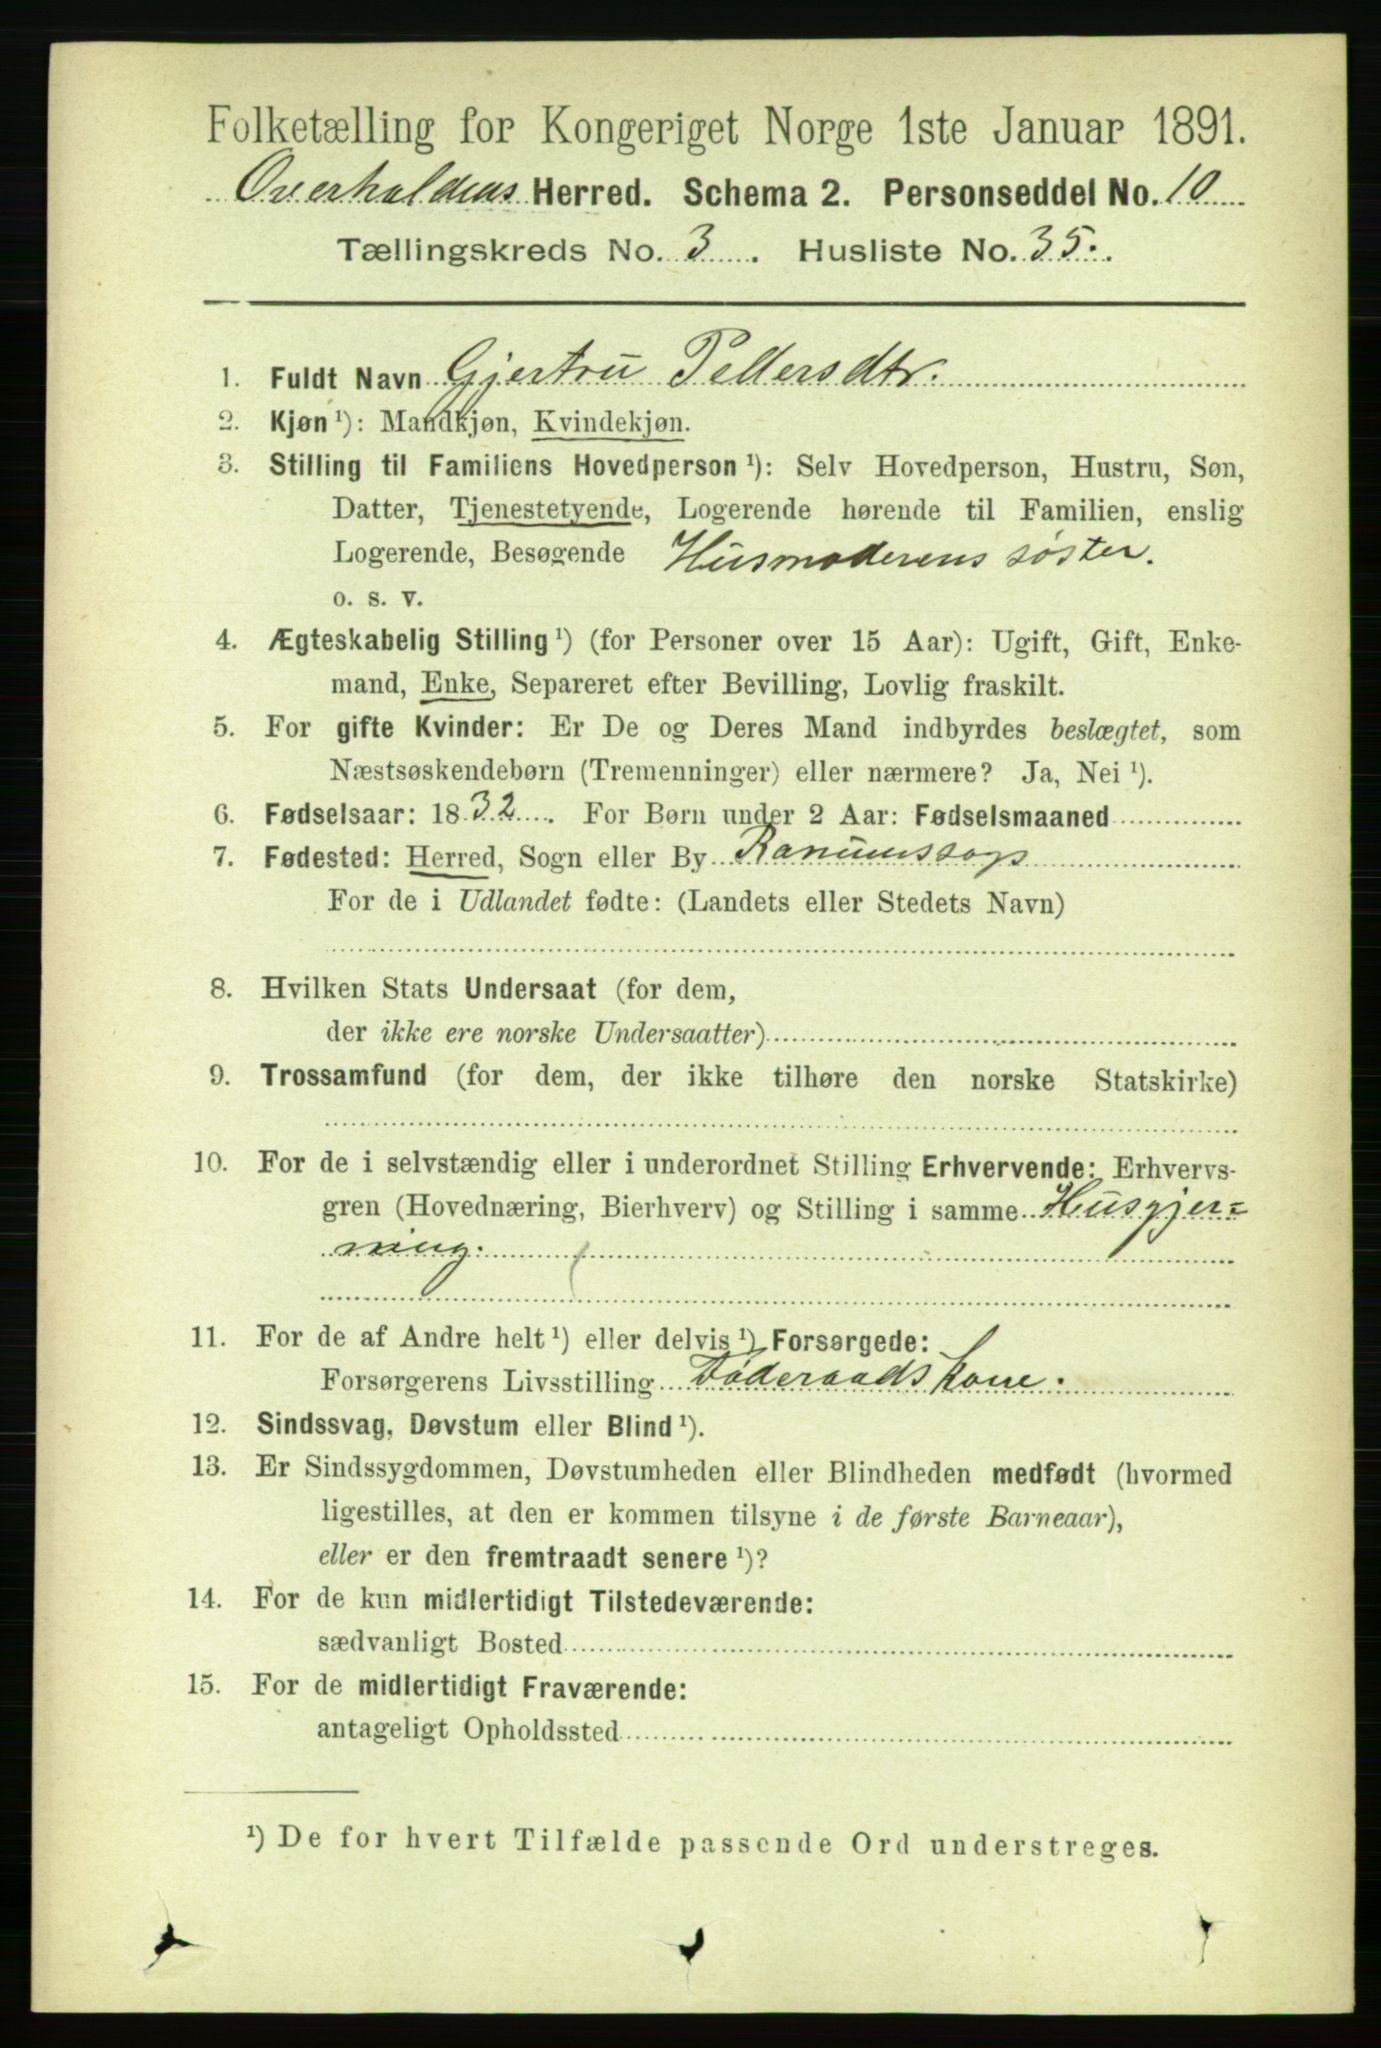 Folketælling for Kongeriget Norge 1ste Januar 1891.
Overhaldens Herred. Schema 2. Personseddel No. 10
Tællingskreds No. 3. Husliste No. 35.
1. Fuldt Navn Gjertru Pettersdtr.
2. Kjøn ¹): Mandkjøn, Kvindekjøn.
3. Stilling til Familiens Hovedperson ¹): Selv Hovedperson, Hustru, Søn,
Datter, Tjenestetyende, Logerende hørende til Familien, enslig
Logerende, Besøgende Husmoderens søster.
o. s. v.
4. Ægteskabelig Stilling ¹) (for Personer over 15 Aar): Ugift, Gift, Enke-
mand, Enke, Separeret efter Bevilling, Lovlig fraskilt.
5. For gifte Kvinder: Er De og Deres Mand indbyrdes beslægtet, som
Næstsøskendebørn (Tremenninger) eller nærmere? Ja, Nei ¹).
6. Fødselsaar: 1832. For Børn under 2 Aar: Fødselsmaaned
7. Fødested: Herred, Sogn eller By Ranumssogn
For de i Udlandet fødte: (Landets eller Stedets Navn)
8. Hvilken Stats Undersaat (for dem,
der ikke ere norske Undersaatter)
9. Trossamfund (for dem, der ikke tilhøre den norske Statskirke)
10. For de i selvstændig eller i underordnet Stilling Erhvervende: Erhvervs-
gren (Hovednæring, Bierhverv) og Stilling i samme Husgjer=
ning.
11. For de af Andre helt ¹) eller delvis ¹) Forsørgede:
Forsørgerens Livsstilling Føderaadskone.
12. Sindssvag, Døvstum eller Blind ¹).
13. Er Sindssygdommen, Døvstumheden eller Blindheden medfødt (hvormed
ligestilles, at den er kommen tilsyne i de første Barneaar),
eller er den fremtraadt senere ¹)?
14. For de kun midlertidigt Tilstedeværende:
sædvanligt Bosted
15. For de midlertidigt Fraværende:
antageligt Opholdssted
¹) De for hvert Tilfælde passende Ord understreges.